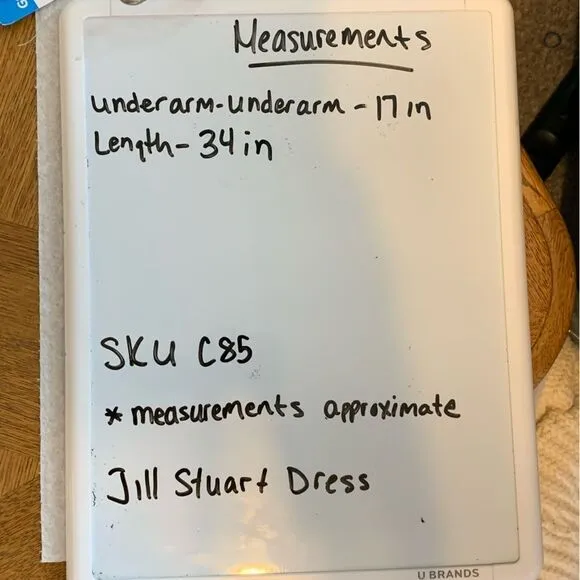 Measurements
underarm-underarm - 17 in
Length - 34 in
SKU C85
* measurements approximate
Jill Stuart Dress
U BRANDS